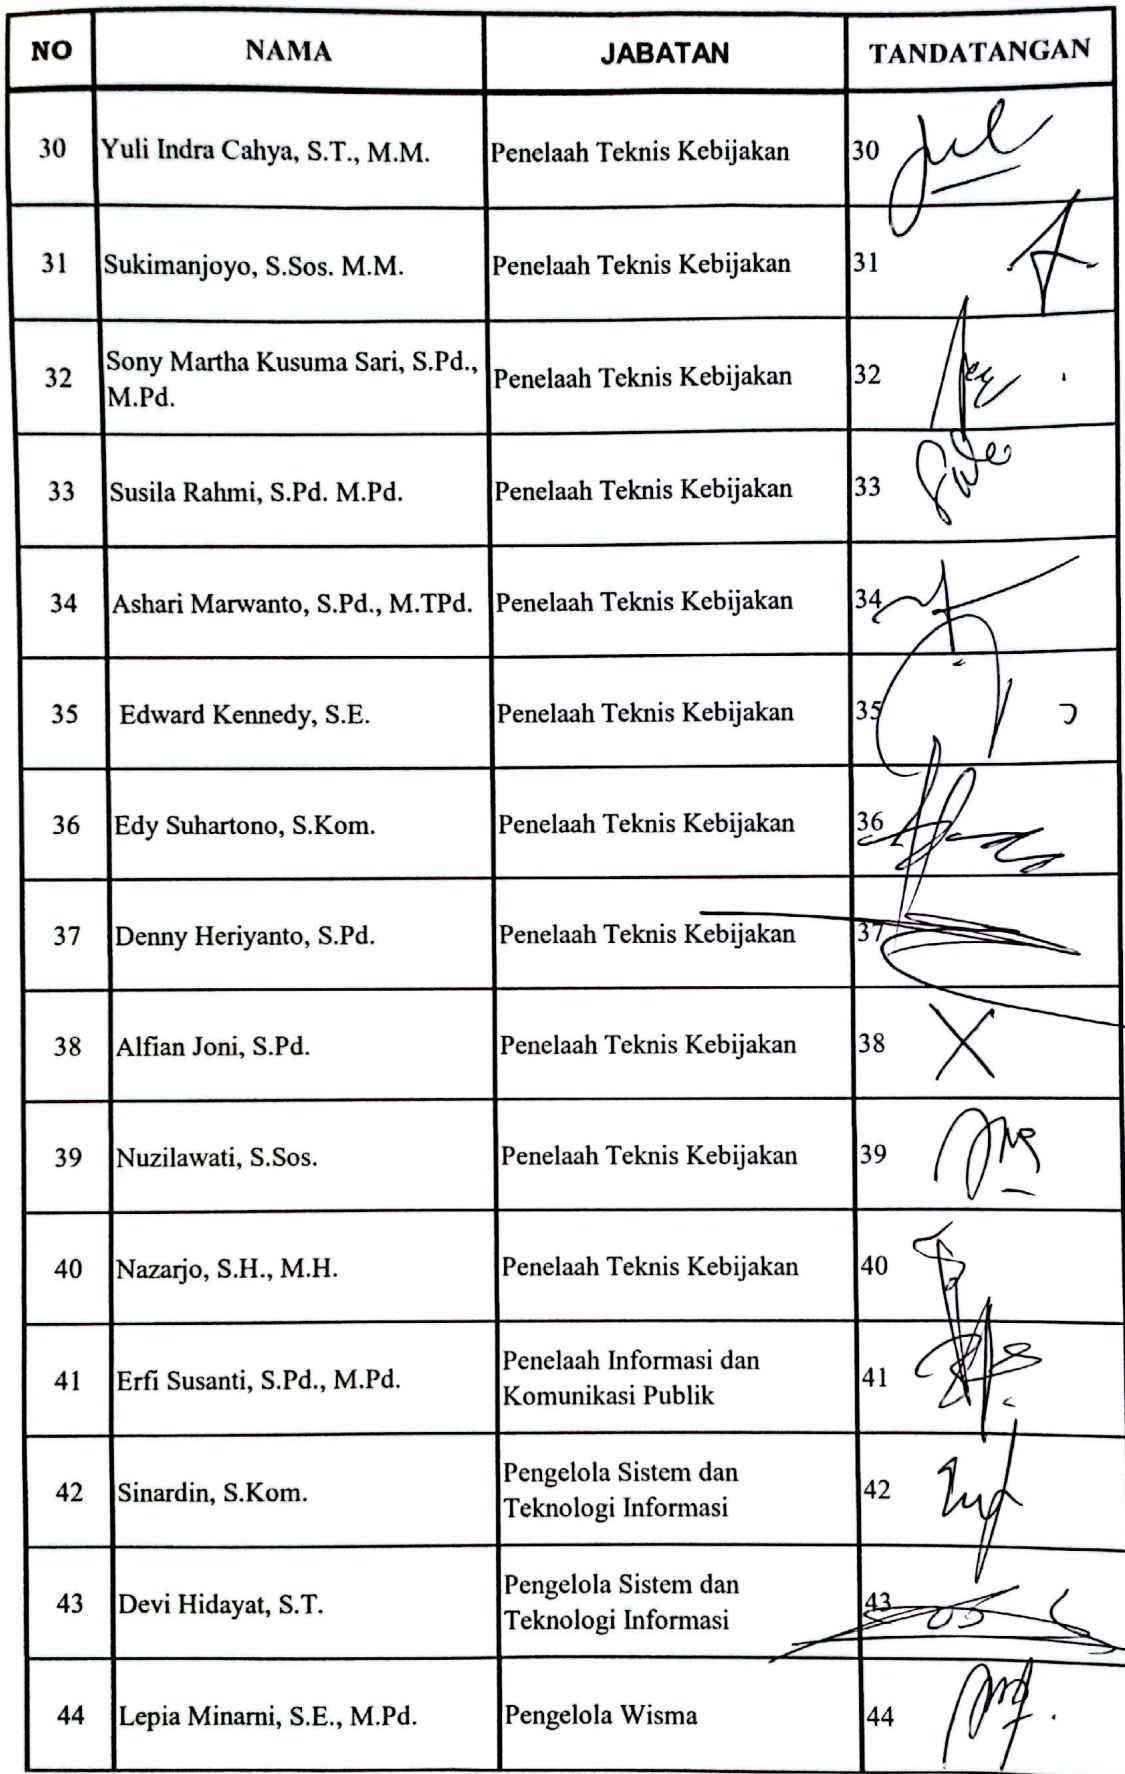 NO NAMA JABATAN TANDATANGAN
30 Yuli Indra Cahya, S.T., M.M. Penelaah Teknis Kebijakan 30
31 Sukimanjoyo, S.Sos. M.M. Penelaah Teknis Kebijakan 31
32 Sony Martha Kusuma Sari, S.Pd., Penelaah Teknis Kebijakan 32
M.Pd.
33 Susila Rahmi, S.Pd. M.Pd. Penelaah Teknis Kebijakan 33
34 Ashari Marwanto, S.Pd., M.TPd. Penelaah Teknis Kebijakan 34
35 Edward Kennedy, S.E. Penelaah Teknis Kebijakan 35
36 Edy Suhartono, S.Kom. Penelaah Teknis Kebijakan 36
37 Denny Heriyanto, S.Pd. Penelaah Teknis Kebijakan 37
38 Alfian Joni, S.Pd. Penelaah Teknis Kebijakan 38
39 Nuzilawati, S.Sos. Penelaah Teknis Kebijakan 39
40 Nazarjo, S.H., M.H. Penelaah Teknis Kebijakan 40
41 Erfi Susanti, S.Pd., M.Pd. Penelaah Informasi dan 41
Komunikasi Publik
42 Sinardin, S.Kom. Pengelola Sistem dan 42
Teknologi Informasi
43 Devi Hidayat, S.T. Pengelola Sistem dan 43
Teknologi Informasi
44 Lepia Minarni, S.E., M.Pd. Pengelola Wisma 44